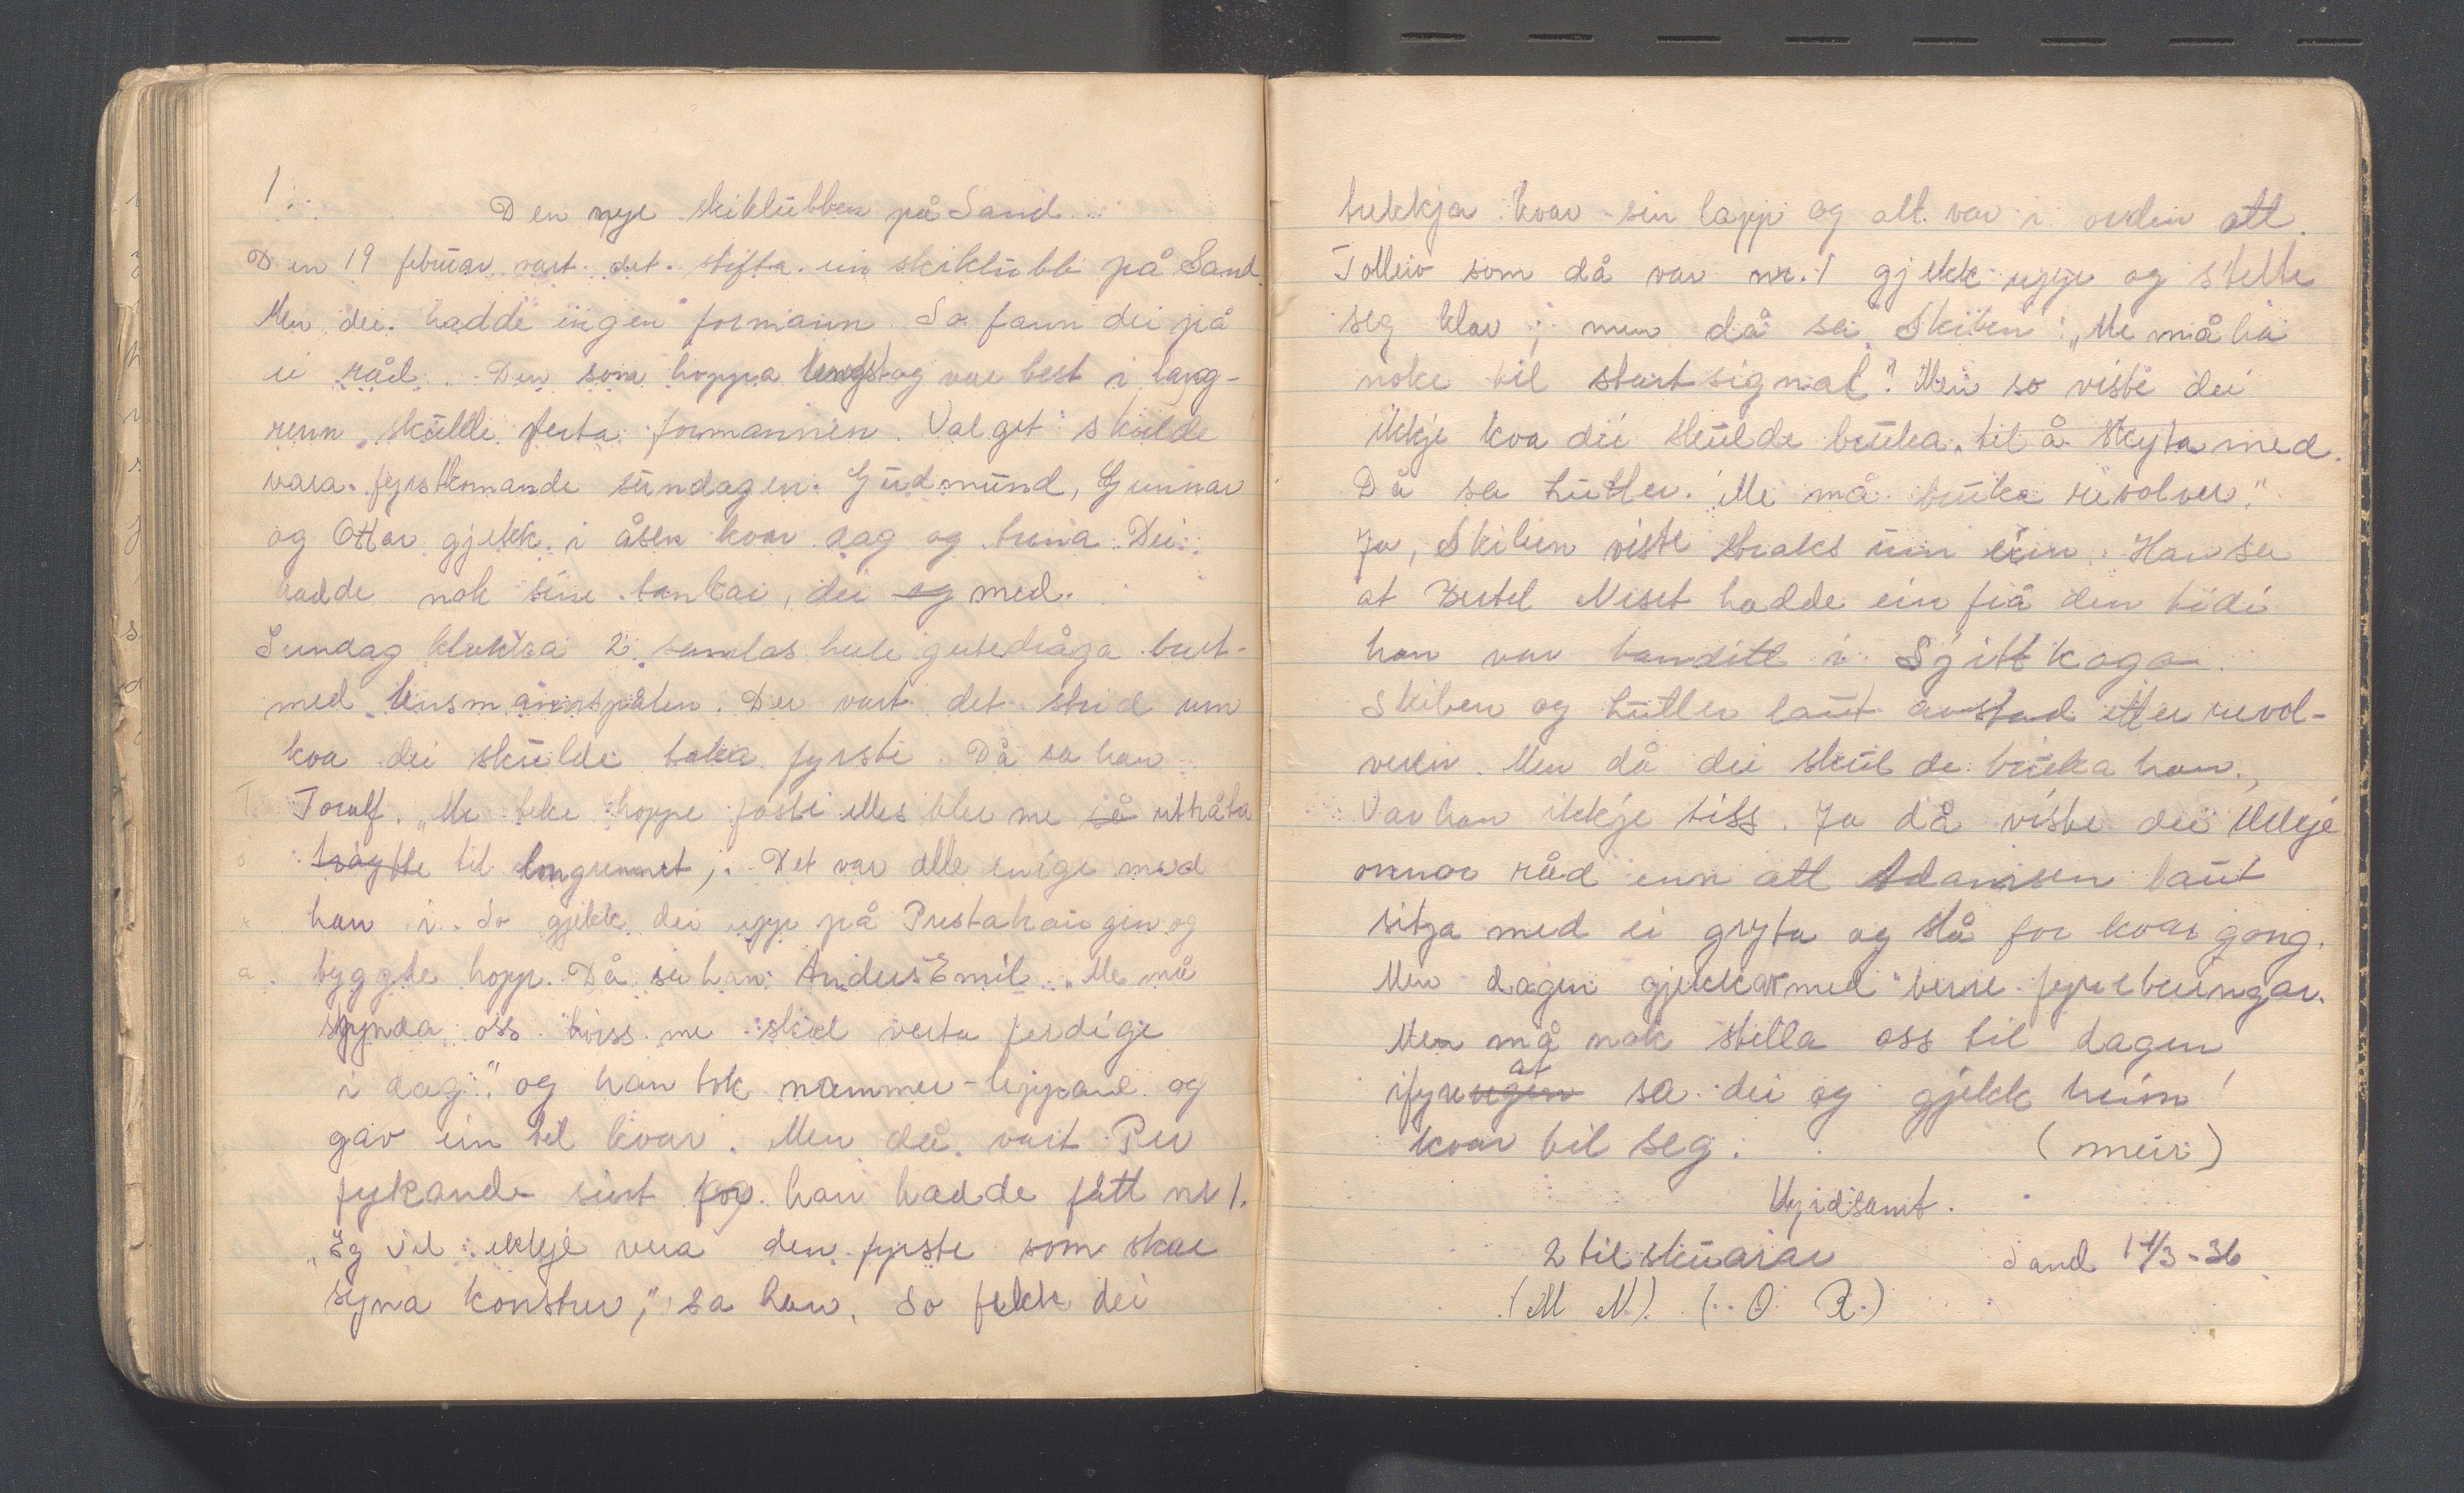 1.
Den nye skiklubben på Sand.
Den 19 februar vart det stifta ein skiklubb på Sand.
Men dei hadde ingen formann. So fann dei på
ei råd. Den som hoppa lengst og var best i lang-
renn skulde verta formannen. Valget skulde
vara fyrstkomande sundagen. Gudmund, Gunnar
og Ottar gjekk i åsen kvar dag og trena. Dei
hadde nok sine tankar, dei og med.
Sundag klokka 2 samlas heile gutedråga burt-
med lensmannsplaten. Der vart det strid um
kva dei skulde taka fyrste. Da sa han
Toralf. „Me teke hoppe føste elles ble me så uthåla
trøytte til langrennet". Det var alle einige med
han i. So gjekk dei uppe på Prestahaugin og
byggte hopp. Då sa han Anders Emil „Me må
skynda oss viss me skal verta ferdige
i dag." og han tok nummer-lappane og
gav ein til kvar. Men då vart Per
fykande sint for han hadde fått nr 1.
„Eg vil ikkje vera den fyrste som skal
syna konster," sa han. So fekk dei
trekkja kvar sin lapp og alt var i orden att.
Tolleiv som då var nr. 1 gjekk uppe og stellte
seg klar; men då sa Skiben: „Me må ha
noke til startsignal". Men so viste dei
ikkje kva dei skulde bruka til å skyta med.
Då sa Lutler. „Me må bruka revolver."
Ja, Skiben viste straks um ein. Han sa
at Bertel Neset hadde ein frå den tidi
han var banditt i Sjittkago.
Skiben og Lutler laut avstad etter revol-
veren. Men då dei skulde bruka han,
Var han ikkje tiss. Ja då viste dei ikkje
onnor råd enn att Adamsen laut
sitja med ei gryta og slå for kvar gong.
Men dagen gjekk av med berre fyrebuingar.
Men må nok stella oss til dagen
ifyreugen at sa dei og gjekk heim
kvar til seg. (meir)
Ugidsamt.
2 tilskuarar Sand 11/3-36
(M N) (O R)